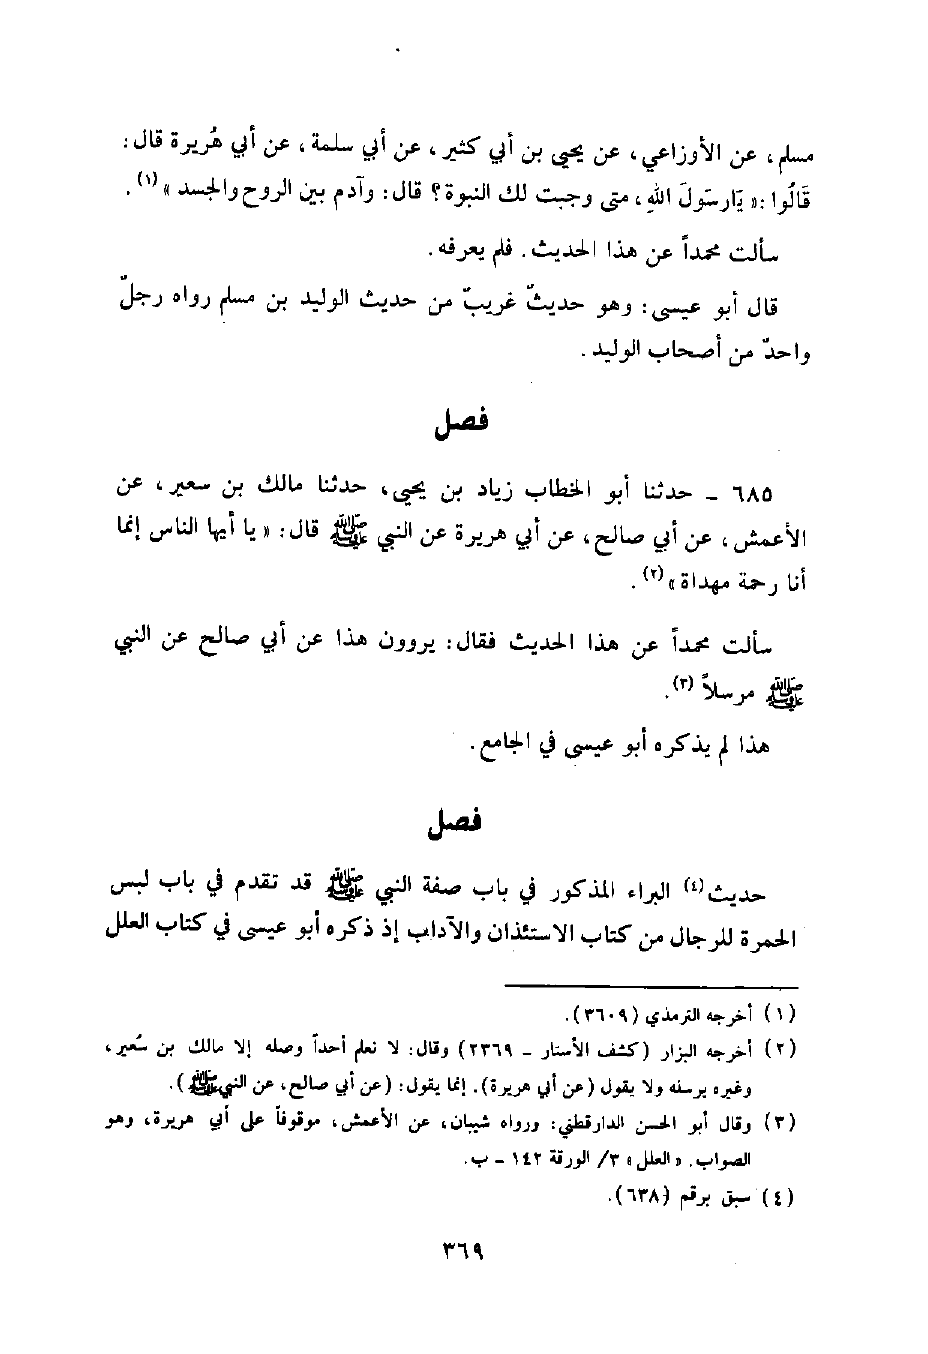 مسلم، عن الأوزاعي، عن يحيى بن أبي كثير، عن أبي سلمة، عن أبي هُريرة قال:
قَالُوا: « يَارسَولَ اللهِ، متى وجبت لك النبوة؟ قال: وآدم بين الروح والجسد »(١).
سألت محمداً عن هذا الحديث. فلم يعرفه.
قال أبو عيسى: وهو حديثٌ غريبٌ من حديث الوليد بن مسلم رواه رجلٌ
واحدٌ من أصحاب الوليد.
فصل
٦٨٥ - حدثنا أبو الخطاب زياد بن يحيى، حدثنا مالك بن سعير، عن
الأعمش، عن أبي صالح، عن أبي هريرة عن النبي ﷺ قال: « يا أيها الناس إنما
أنا رحمة مهداة »(٢).
سألت محمداً عن هذا الحديث فقال: يروون هذا عن أبي صالح عن النبي
ﷺ مرسلاً (٣).
هذا لم يذكره أبو عيسى في الجامع.
فصل
حديث(٤) البراء المذكور في باب صفة النبي ﷺ قد تقدم في باب لبس
الحمرة للرجال من كتاب الاستئذان والآداب إذ ذكره أبو عيسى في كتاب العلل
(١) أخرجه الترمذي (٣٦٠٩).
(٢) أخرجه البزار (كشف الأستار - ٢٣٦٩) وقال: لا نعلم أحداً وصله إلا مالك بن سُعير،
وغيره يرسله ولا يقول (عن أبي هريرة). إنما يقول: (عن أبي صالح، عن النبي ﷺ).
(٣) وقال أبو الحسن الدارقطني: ورواه شيبان، عن الأعمش، موقوفاً على أبي هريرة، وهو
الصواب. « العلل » ٣/ الورقة ١٤٢ - ب.
(٤) سبق برقم (٦٣٨).
٣٦٩